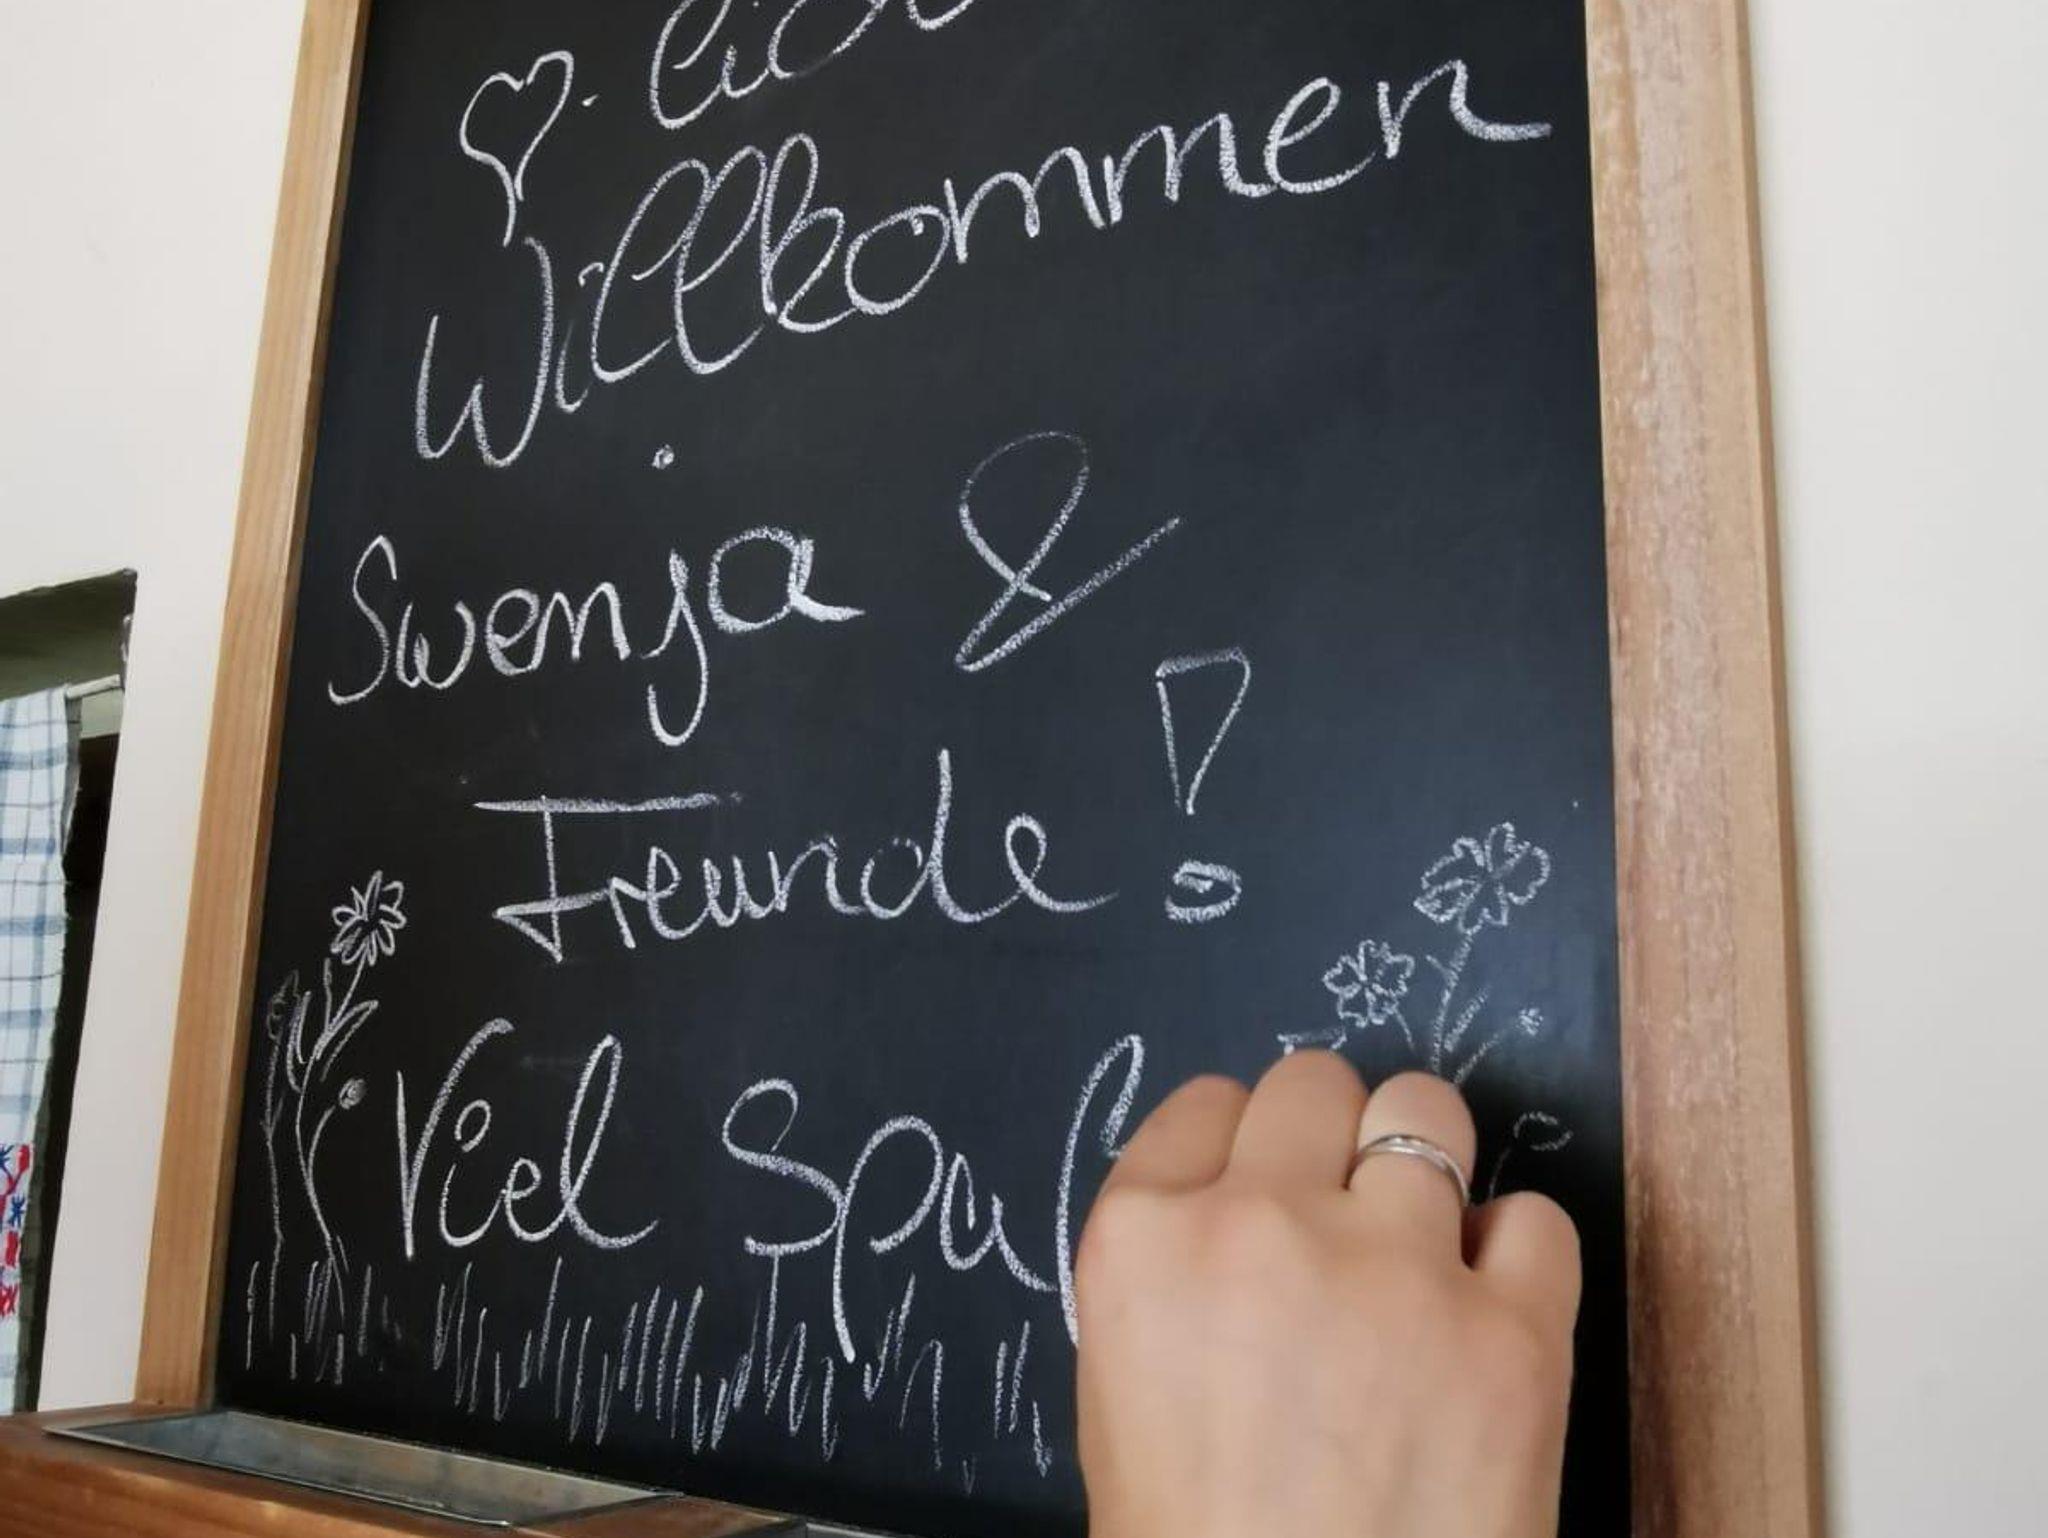 Willkommen
Swenja &
Freunde!
Viel Spaß